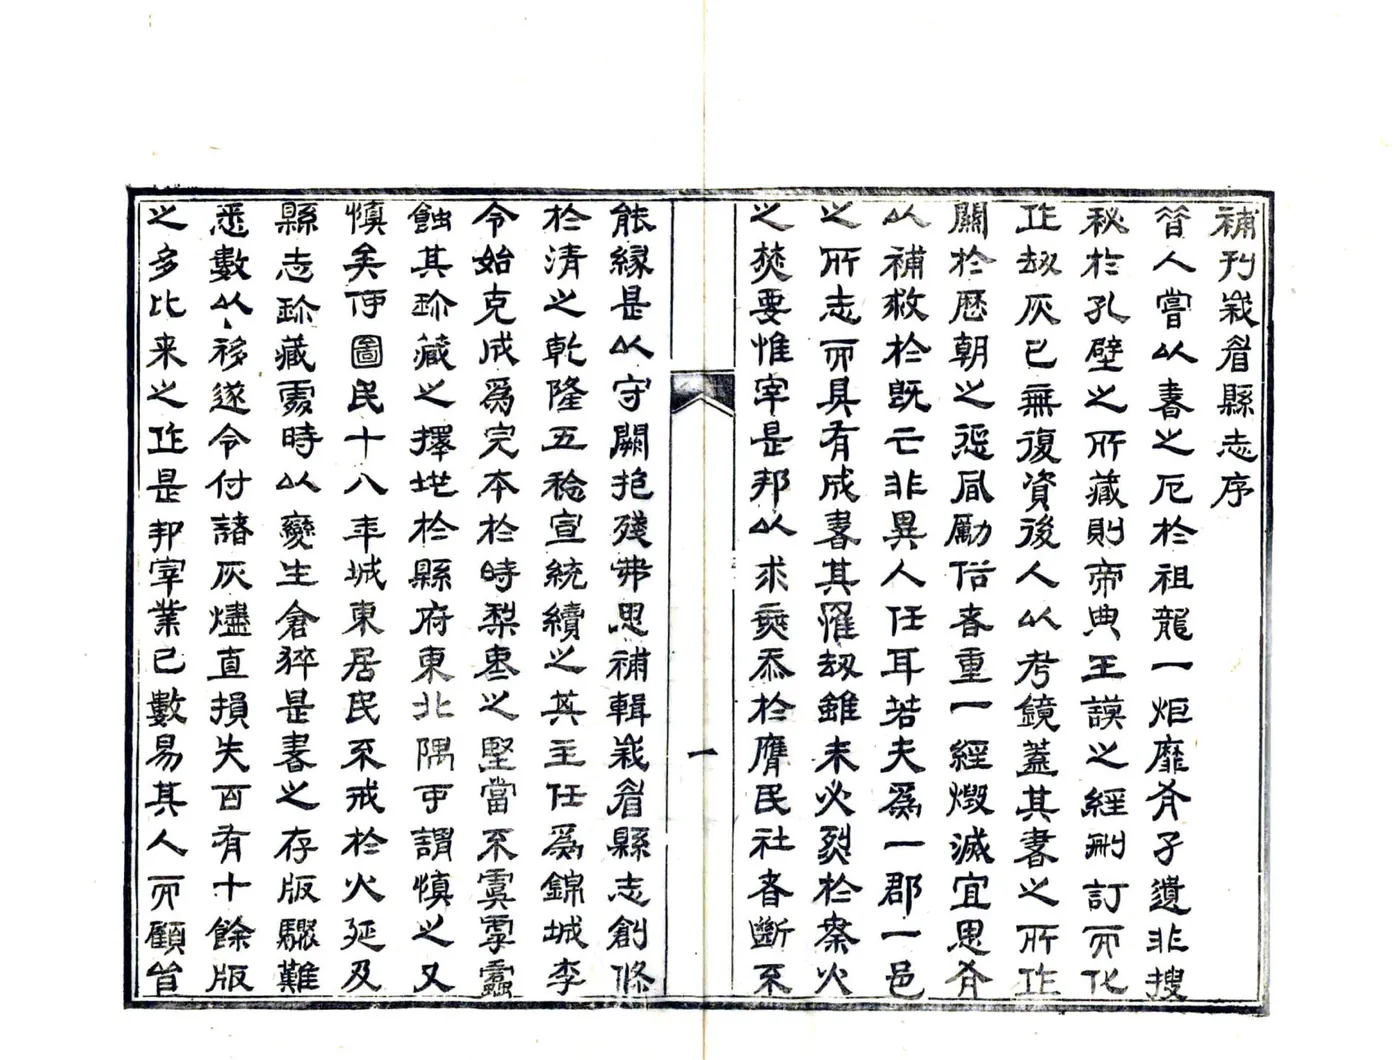 補刊峩眉縣志序
昔人嘗以書之厄於祖龍一炬靡有孑遺非搜
秘於孔壁之所藏則帝典王謨之經刪訂而化
作劫灰已無復資後人以考鏡蓋其書之所作
關於歷朝之懲風勵俗者重一經燬滅宜思有
以補救於既亡非異人任耳若夫爲一郡一邑
之所志而具有成書其罹劫雖未火烈於秦火
之焚要惟宰是邦以求無忝於膺民社者斷不
一
能緣是以守闕抱殘弗思補輯峩眉縣志創修
於清之乾隆五稔宣統續之其主任爲錦城李
令始克成爲完本於時梨棗之堅當不虞零蠹
蝕其珍藏之擇地於縣府東北隅可謂慎之又
慎矣何圖民十八年城東居民不戒於火延及
縣志珍藏處時以變生倉猝是書之存版驟難
悉數以移遂令付諸灰燼直損失百有十餘版
之多比来之作是邦宰業已數易其人而顧省